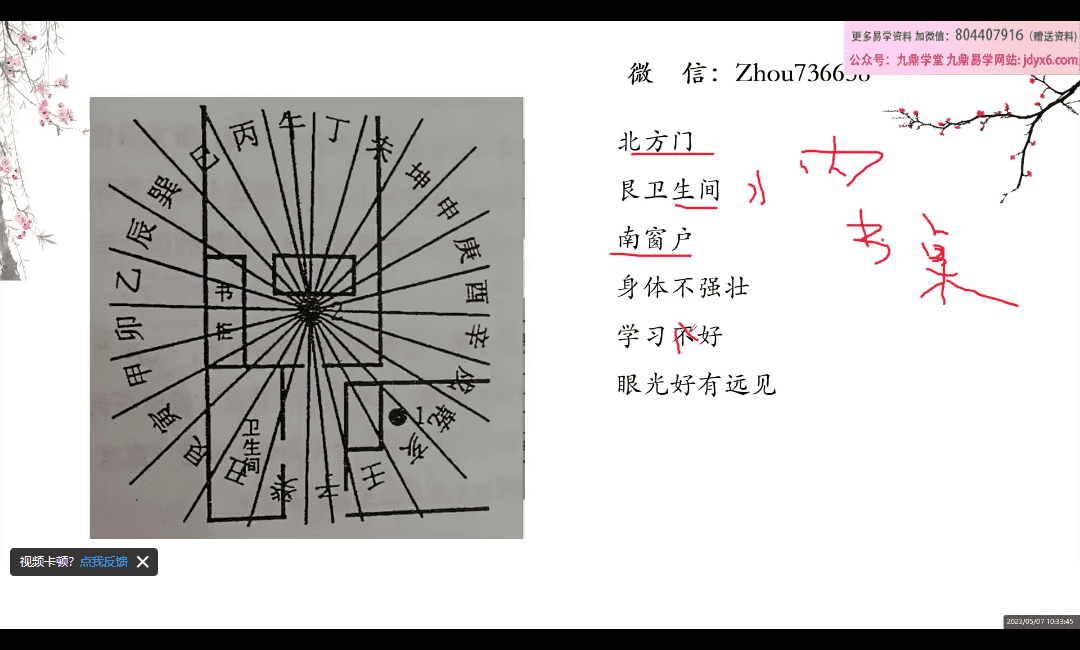 更多易学资料 加微信：804407916（赠送资料）
公众号：九鼎学堂 九鼎易学网站: jdyx6.com
微 信：Zhou736658
北方门
艮卫生间
南窗户
身体不强壮
学习不好
眼光好有远见
书桌
巳 丙 午 丁 未
巽 坤
辰 申
乙 庚
卯 酉
甲 辛
寅 戌
艮 乾
丑 亥
癸 子 壬
书
卫生间
2
1
视频卡顿? 点我反馈
2023/05/07 10:33:45